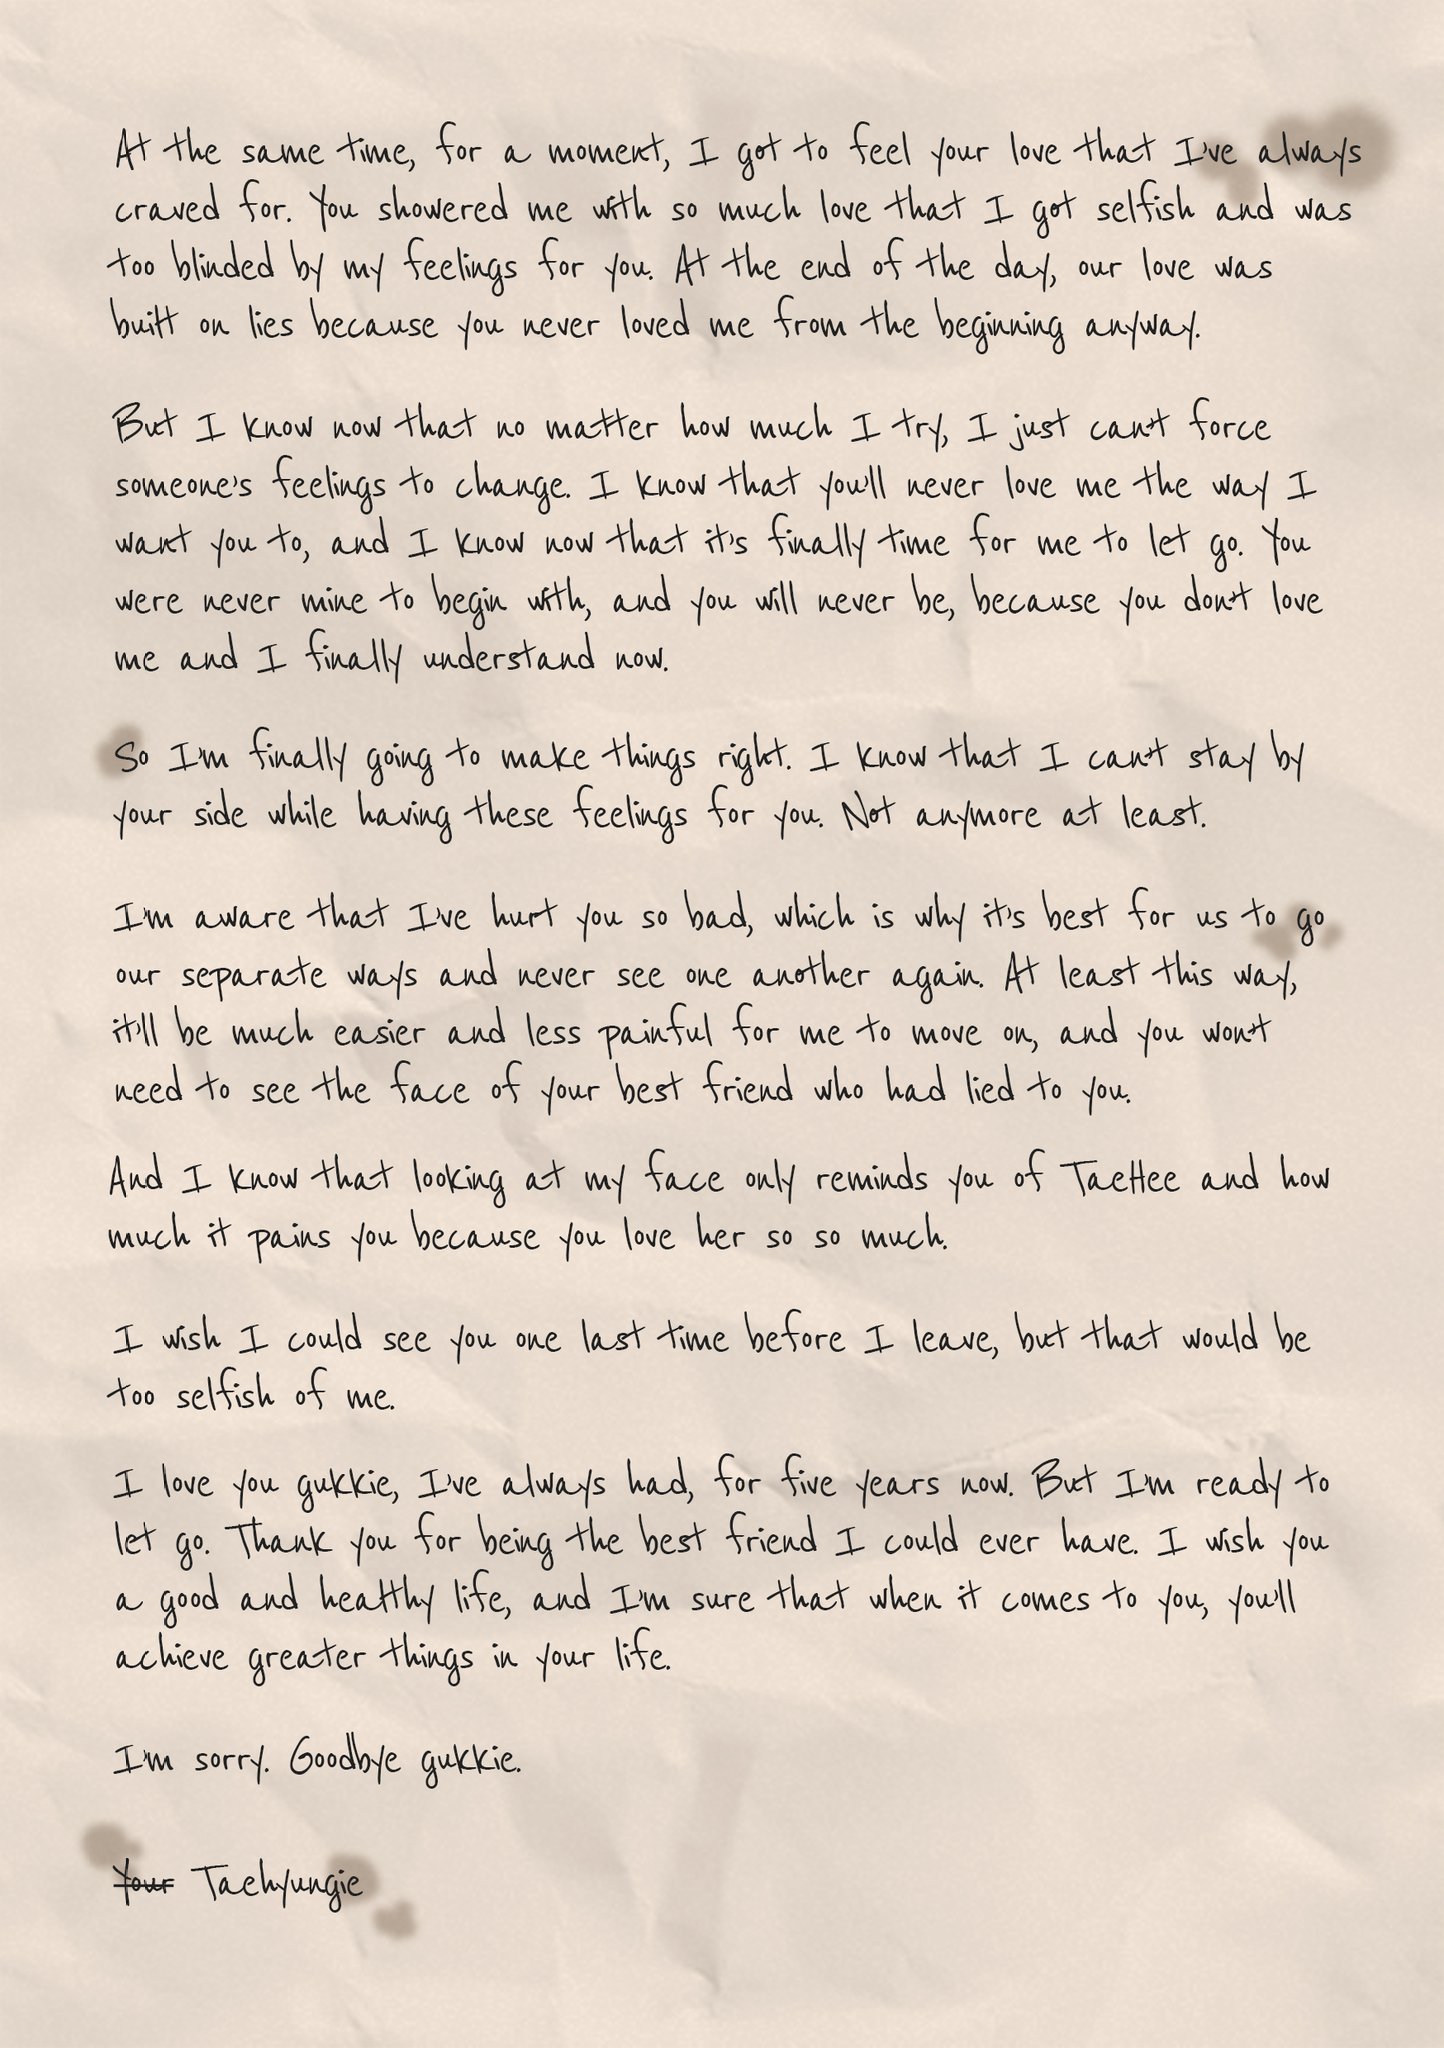 At the same time, for a moment, I got to feel your love that I've always
craved for. You showered me with so much love that I got selfish and was
too blinded by my feelings for you. At the end of the day, our love was
built on lies because you never loved me from the beginning anyway.
But I know now that no matter how much I try, I just can't force
someone's feelings to change. I know that you'll never love me the way I
want you to, and I know now that it's finally time for me to let go. You
were never mine to begin with, and you will never be, because you don't love
me and I finally understand now.
So I'm finally going to make things right. I know that I can't stay by
your side while having these feelings for you. Not anymore at least.
I'm aware that I've hurt you so bad, which is why it's best for us to go
our separate ways and never see one another again. At least this way,
it'll be much easier and less painful for me to move on, and you won't
need to see the face of your best friend who had lied to you.
And I know that looking at my face only reminds you of TaeHee and how
much it pains you because you love her so so much.
I wish I could see you one last time before I leave, but that would be
too selfish of me.
I love you gukkie, I've always had, for five years now. But I'm ready to
let go. Thank you for being the best friend I could ever have. I wish you
a good and healthy life, and I'm sure that when it comes to you, you'll
achieve greater things in your life.
I'm sorry. Goodbye gukkie.
Your Taehyungie